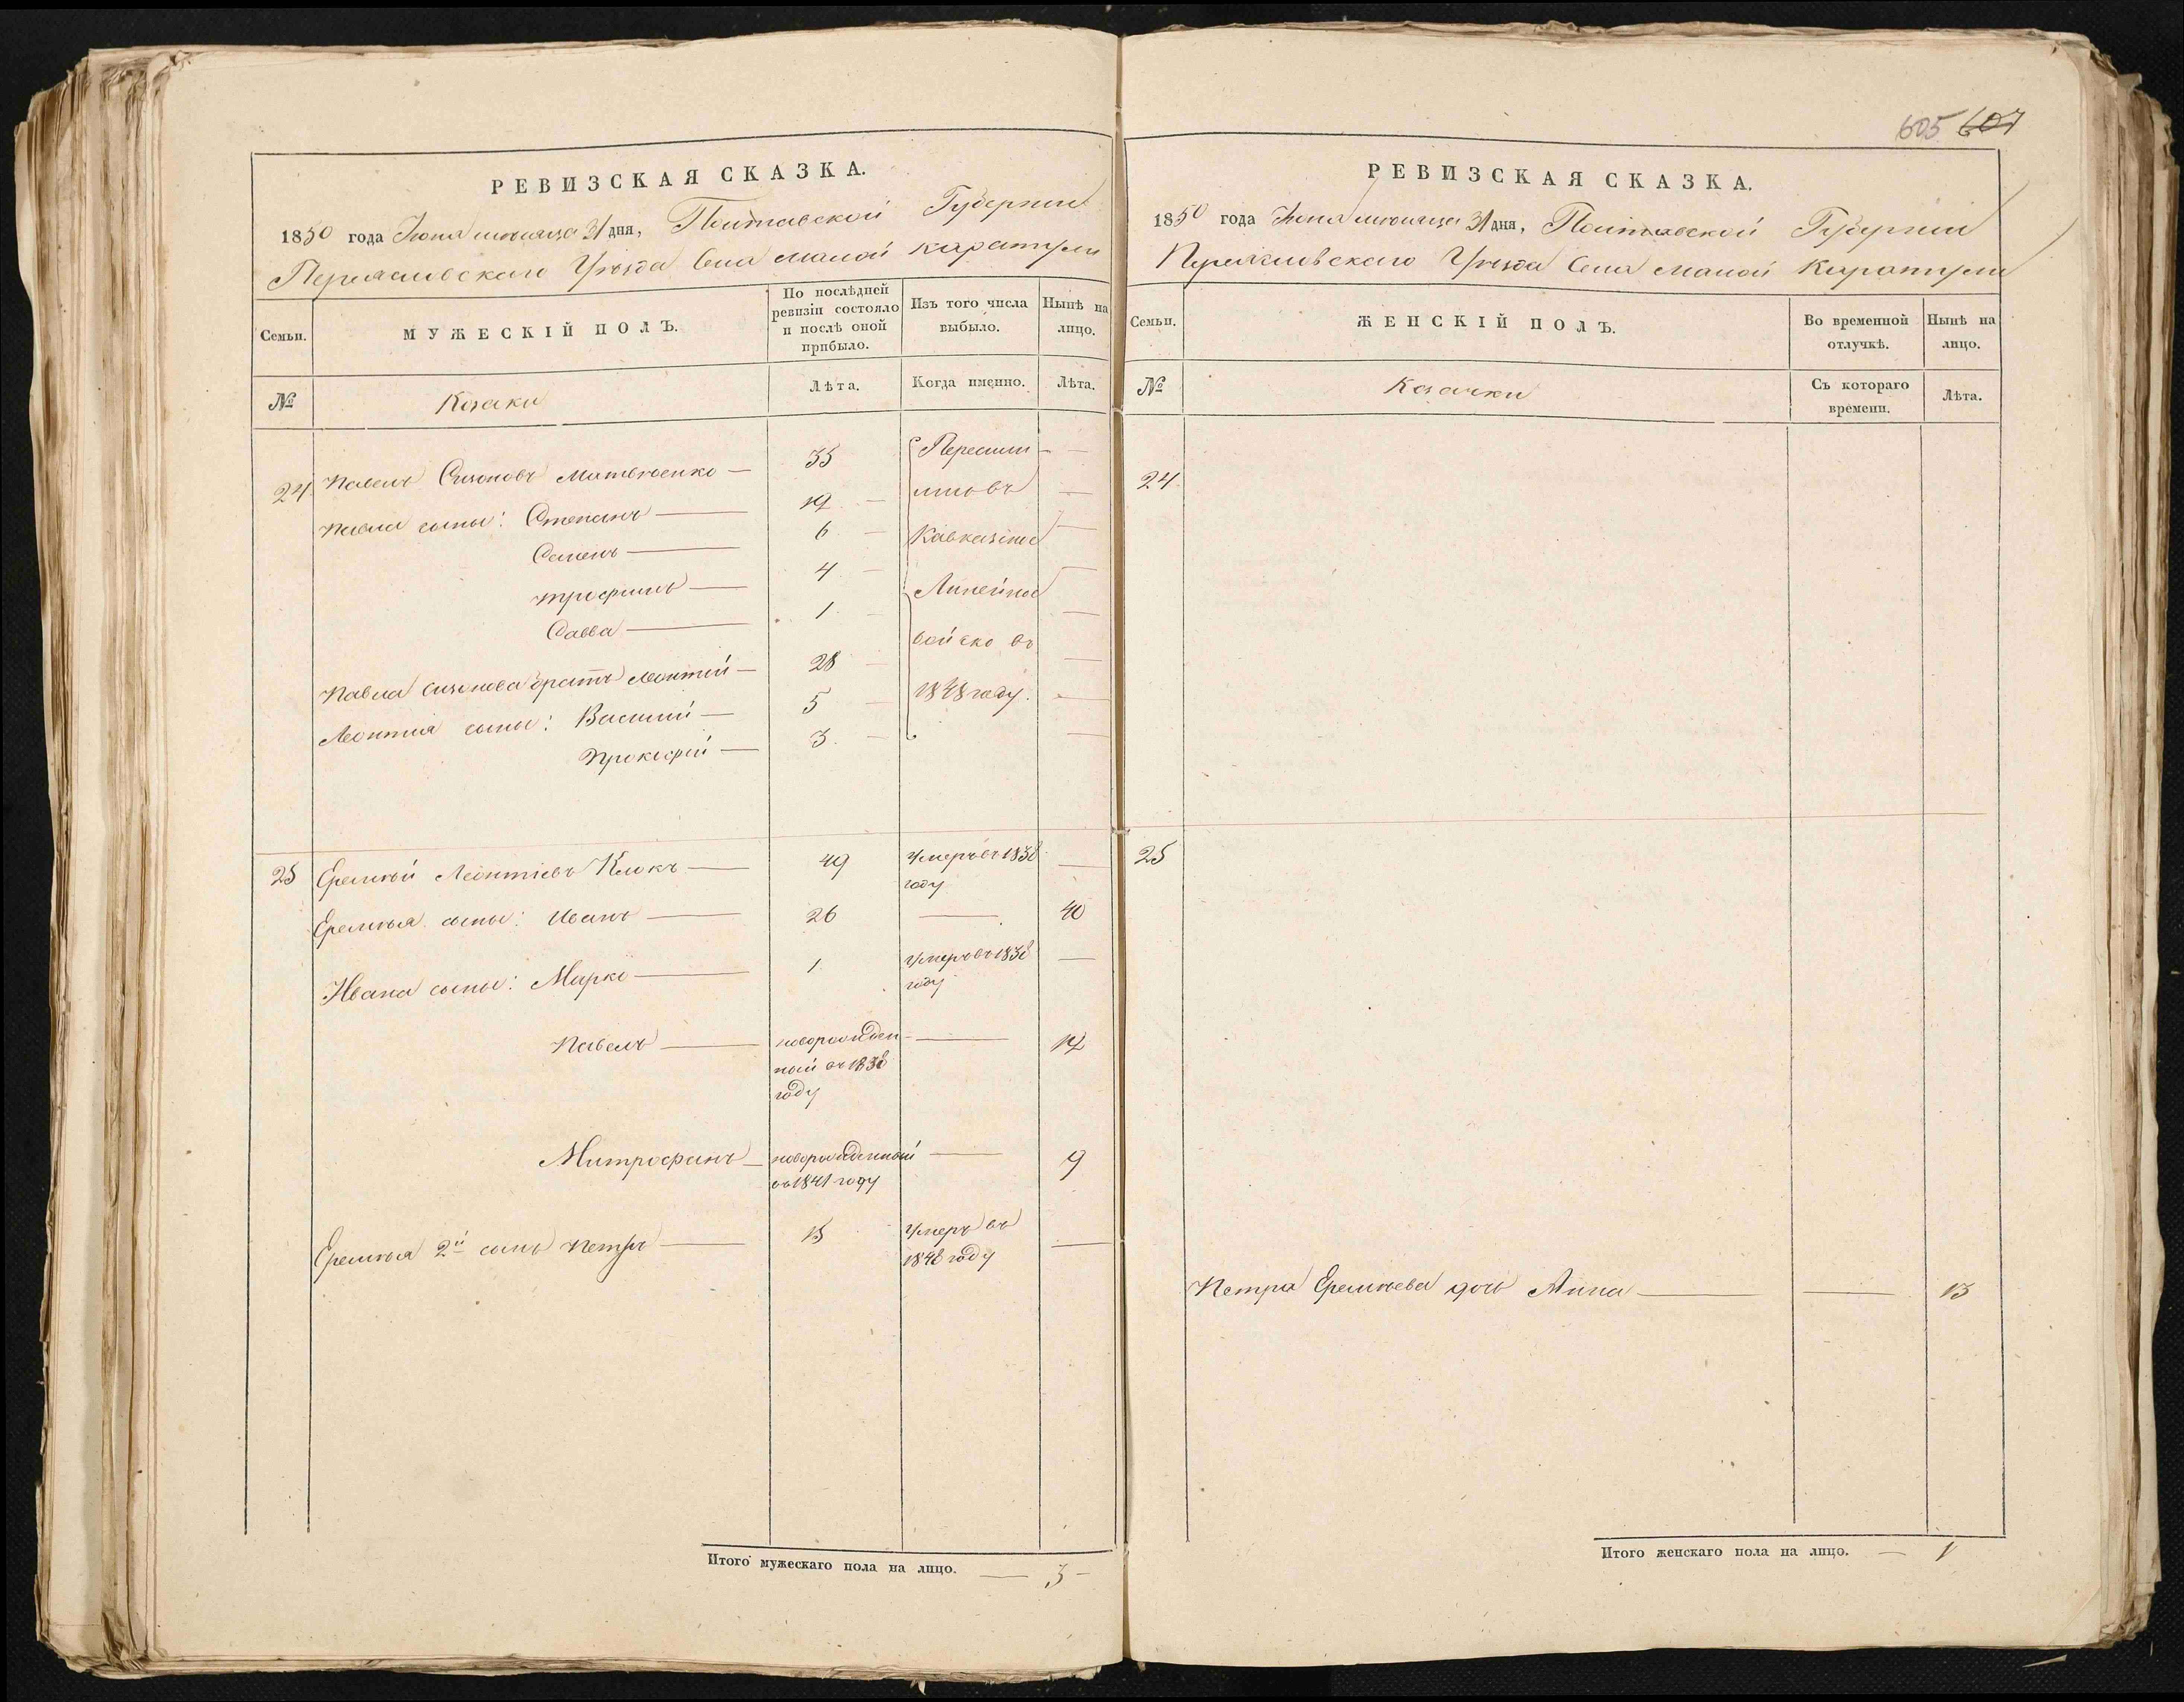 605 607
РЕВИЗСКАЯ СКАЗКА.
1850 года Июля мѣсяца 31 дня, Полтавской Губерніи
Переяславскаго Уѣзда Села Малой Каратули
Семьи.
МУЖЕСКІЙ ПОЛЪ.
По послѣдней
ревизіи состояло
и послѣ оной
прибыло.
Изъ того числа
выбыло.
Нынѣ на
лицо.
№
Козаки
Лѣта.
Когда именно.
Лѣта.
24 Павелъ Сизоновъ Матвѣенко — 35 Пересели —
Павла сыны: Степанъ — 12 — лись въ —
Семенъ — 6 — Кавказкое —
Трофимъ — 4 — Линейное —
Савва — 1 — войско въ —
Павла Сизонова братъ Леонтій — 28 — 1848 году. —
Леонтия сыны: Василий — 5 — —
Прокофій — 3 — —
25 Еремѣй Леонтіевъ Клокъ — 49 Умеръ въ 1838 —
году
Еремѣя сыны: Иванъ — 26 — 40
Ивана сыны: Марко — 1 Умеръ въ 1838 —
году
Павелъ — новорожден — 12
ный въ 1838
году
Митрофанъ — новорожденный — 9
въ 1841 году
Еремѣя 2й сынъ Петръ — 15 Умеръ въ —
1848 году
Итого мужескаго пола на лицо. — 3 —
РЕВИЗСКАЯ СКАЗКА.
1850 года Июля мѣсяца 31 дня, Полтавской Губерніи
Переяславскаго Уѣзда Села Малой Каратули
Семьи.
ЖЕНСКІЙ ПОЛЪ.
Во временной
отлучкѣ.
Нынѣ на
лицо.
№
Козачки
Съ котораго
времени.
Лѣта.
24
25
Петра Еремѣева дочь Анна — — 13
Итого женскаго пола на лицо. — 1